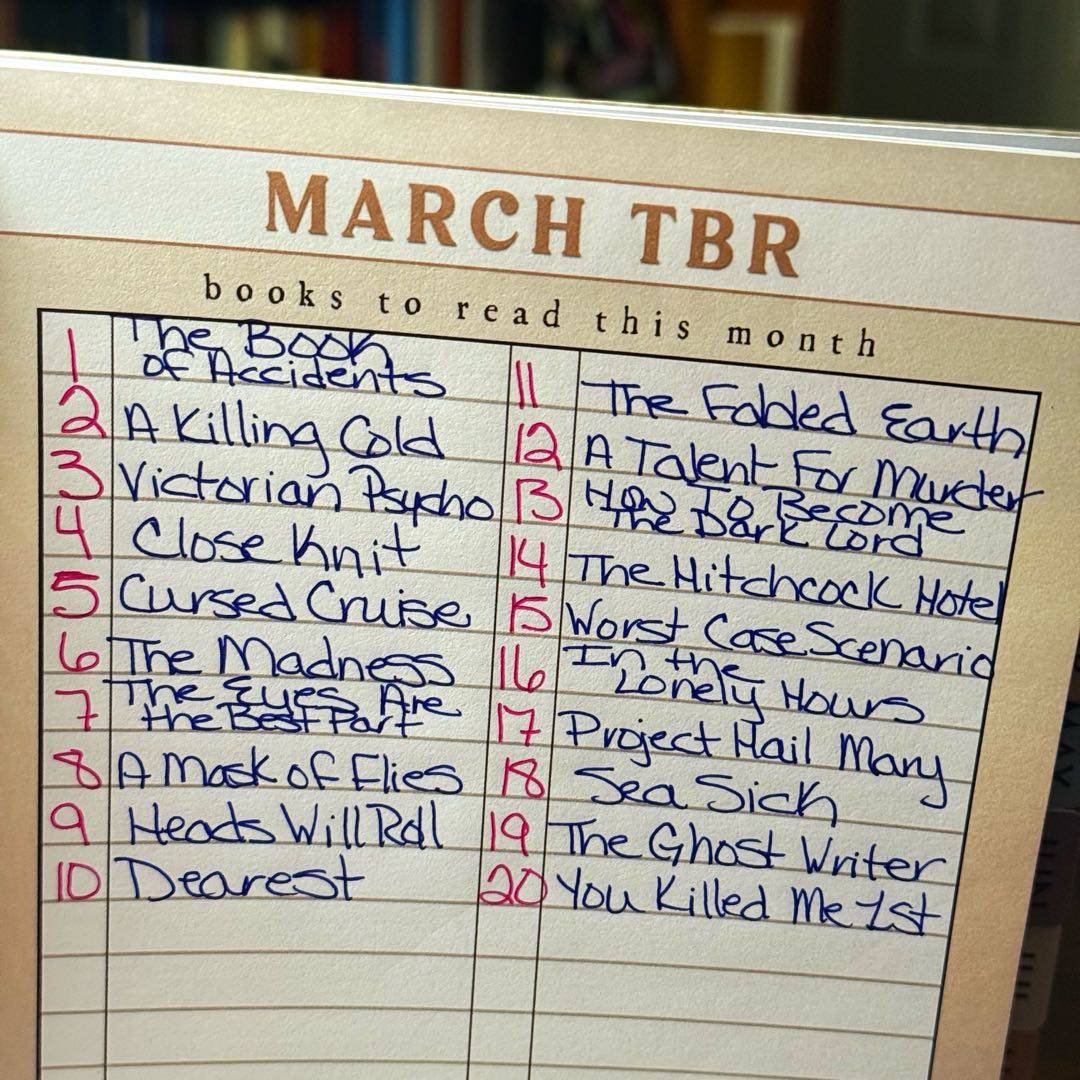 MARCH TBR
books to read this month
1 The Book
of Accidents
2 A Killing Cold
3 Victorian Psycho
4 Close Knit
5 Cursed Cruise
6 The Madness
7 The Eyes Are
the Best Part
8 A Mask of Flies
9 Heads Will Roll
10 Dearest
11 The Folded Earth
12 A Talent For Murder
13 How To Become
the Dark Lord
14 The Hitchcock Hotel
15 Worst Case Scenario
16 In the
Lonely Hours
17 Project Hail Mary
18 Sea Sick
19 The Ghost Writer
20 You Killed Me 1st